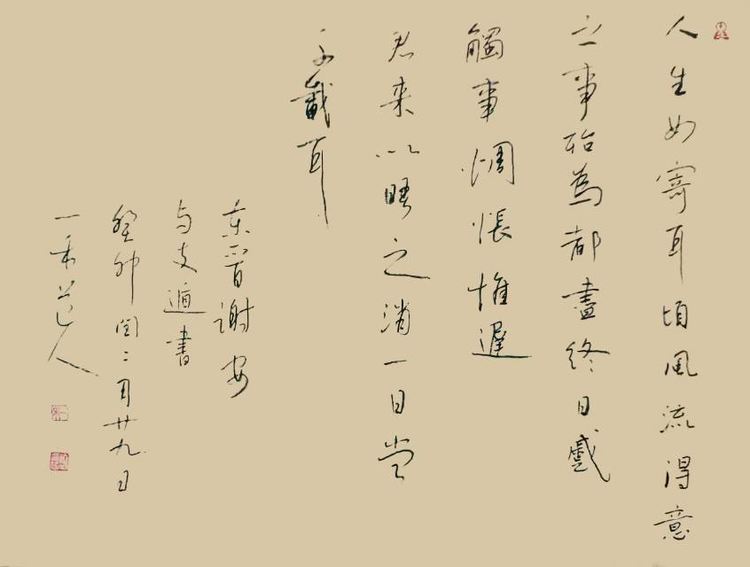 人生如寄耳頃風流得意
之事殆為都盡終日慼
觸事惆悵惟遲
君来以晤之消一日當
千載耳
东晋谢安
与支遁書
癸卯闰二月廿九日
一禾道人